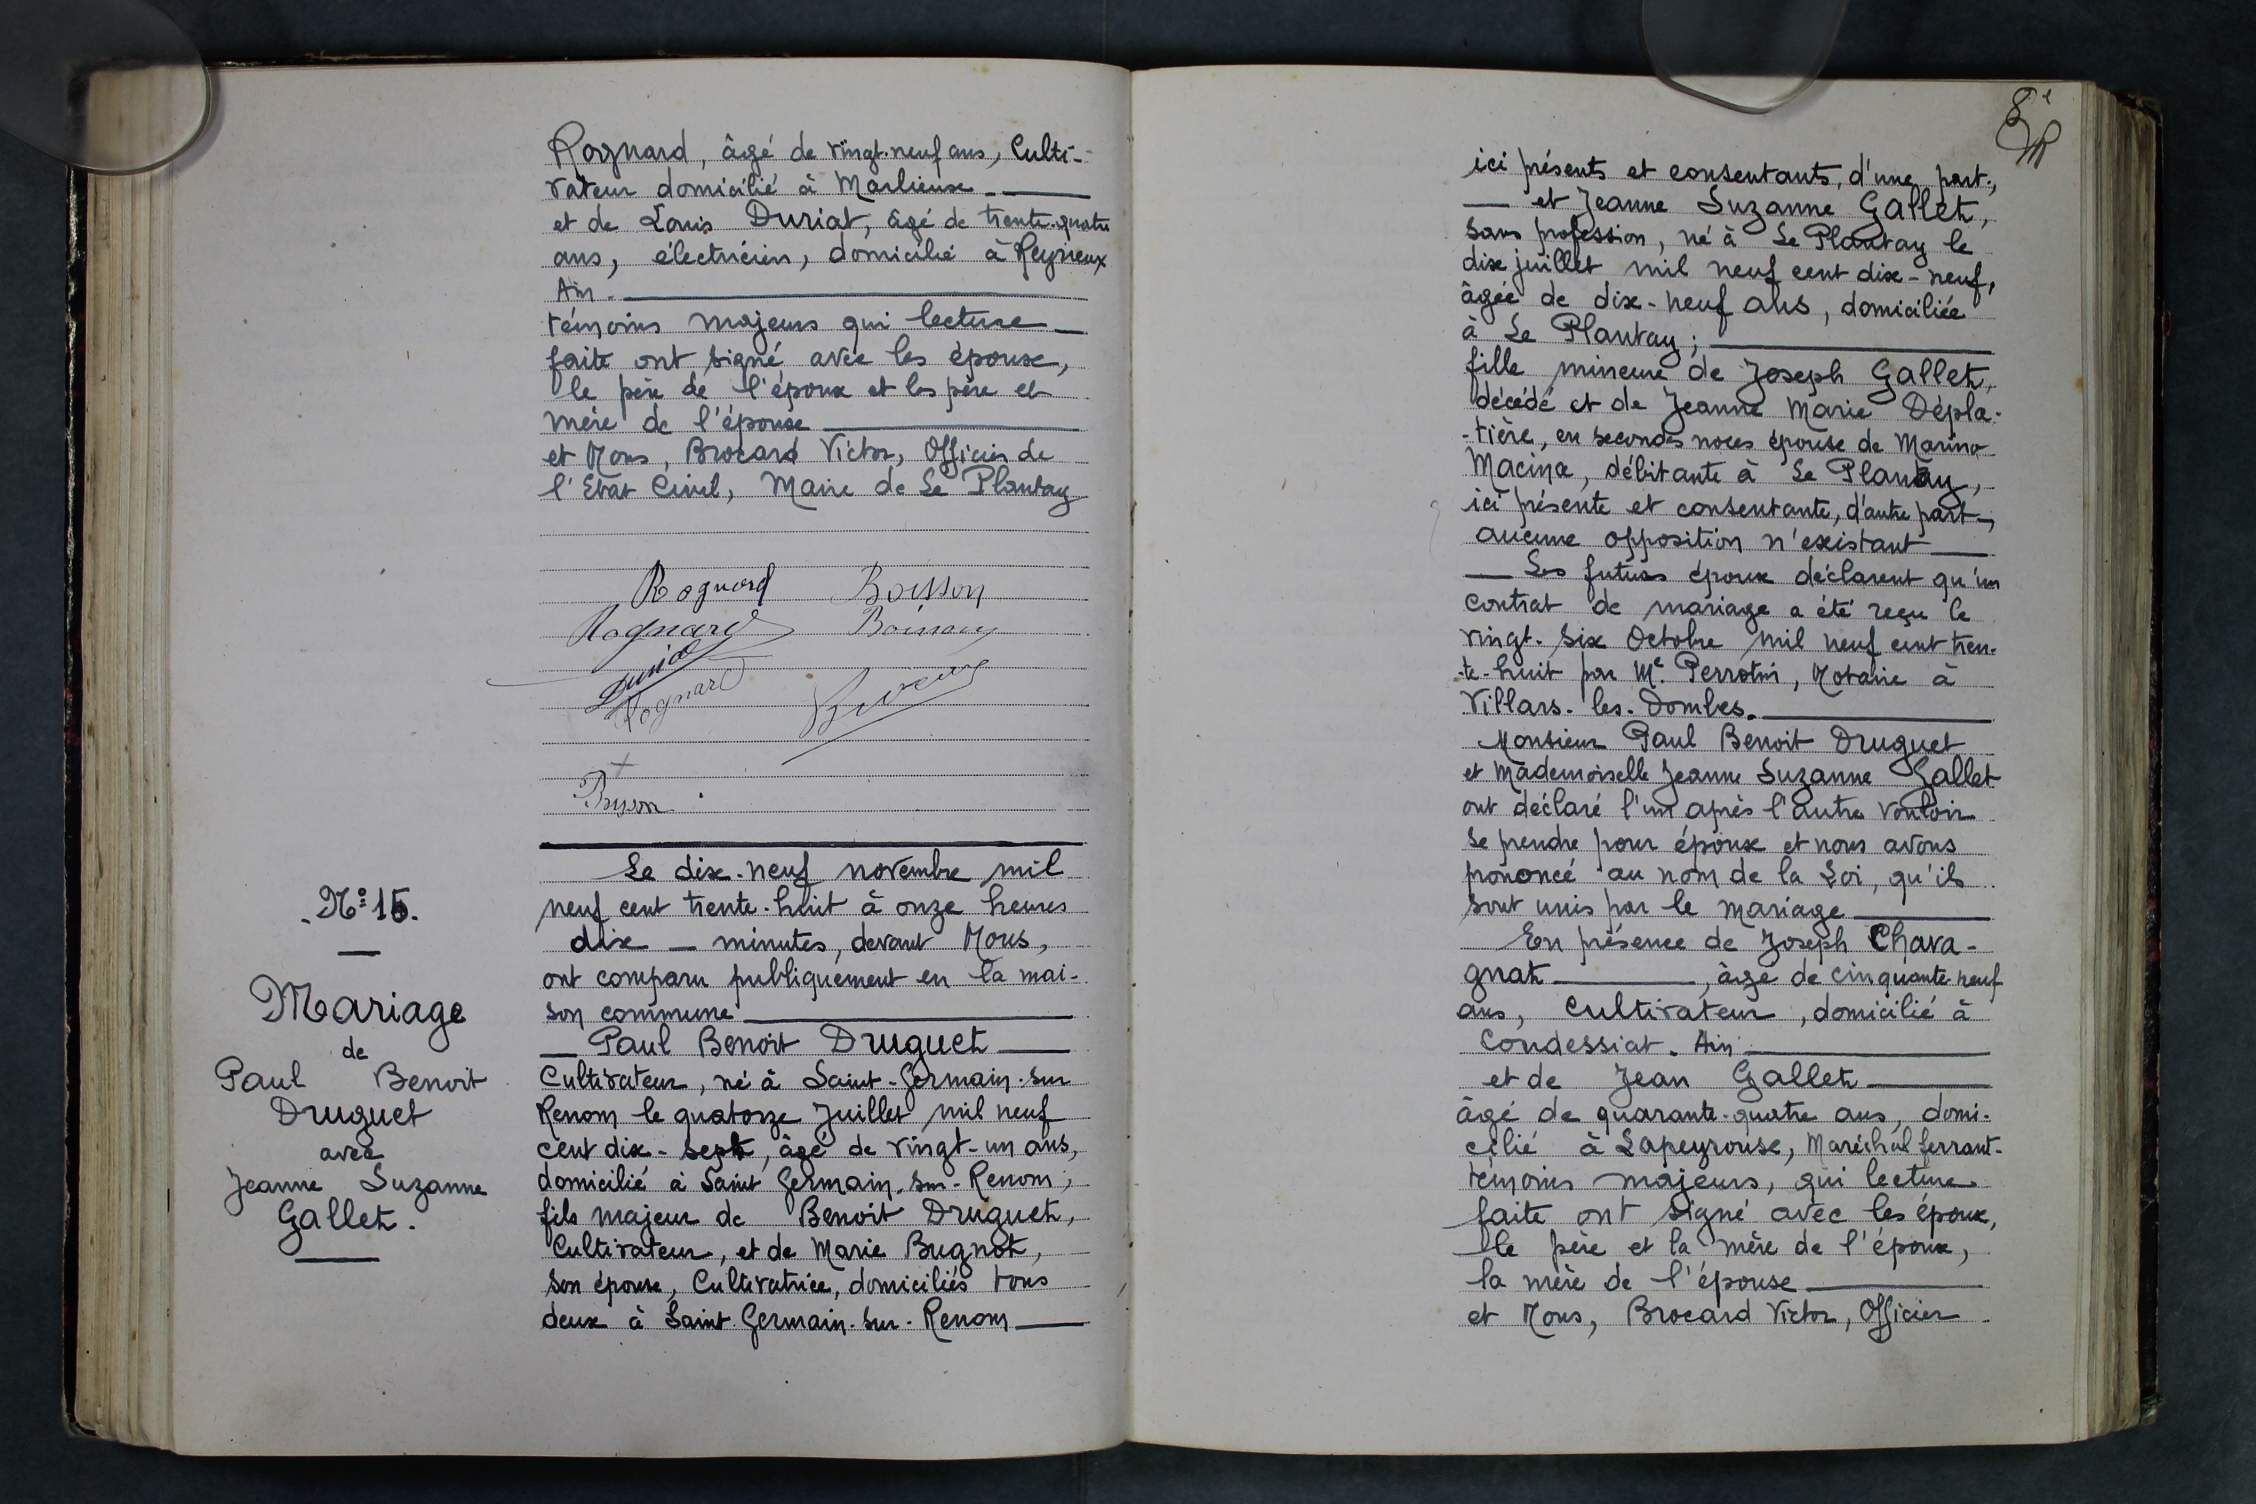 Rognard, âgé de vingt-neuf ans, Culti-
vateur domicilié à Marlieux
et de Louis Duriat, âgé de trente-quatre
ans, électricien, domicilié à Reyrieux
Ain.
témoins majeurs qui lecture
faite ont signé avec les époux,
le père de l'époux et les père et
mère de l'épouse
et Nous, Brocard Victor, Officier de
l'Etat Civil, Maire de Le Plantay
Rognard Boisson
Rognard Boisson
Duriat
Rognard
Le dix-neuf novembre mil
neuf cent trente-huit à onze heures
dix - minutes, devant Nous,
ont comparu publiquement en la mai-
son commune
Paul Benoit Druguet
Cultivateur, né à Saint-Germain-sur
Renom le quatorze Juillet mil neuf
cent dix-sept, âgé de vingt-un ans,
domicilié à Saint Germain-sur-Renom;
fils majeur de Benoit Druguet,
Cultivateur, et de Marie Bugnot,
son épouse, Cultivatrice, domiciliés tous
deux à Saint-Germain-sur-Renom
Mariage
de
Paul Benoit
Druguet
avec
Jeanne Suzanne
Gallet.
ici présents et consentants, d'une part,
et Jeanne Suzanne Gallet,
sans profession, né à Le Plantay le
dix juillet mil neuf cent dix-neuf,
âgée de dix-neuf ans, domiciliée
à Le Plantay;
fille mineure de Joseph Gallet,
décédé et de Jeanne Marie Dépla-
-tière, en secondes noces épouse de Marino
Macina, débitante à Le Plantay,
ici présente et consentante, d'autre part,
aucune opposition n'existant
Les futurs époux déclarent qu'un
contrat de mariage a été reçu le
vingt-six Octobre mil neuf cent tren-
-te-huit par Me Perrotin, Notaire à
Villars-les-Dombes.
Monsieur Paul Benoit Druguet
et Mademoiselle Jeanne Suzanne Gallet
ont déclaré l'un après l'autre vouloir
se prendre pour époux et nous avons
prononcé au nom de la Loi, qu'ils
sont unis par le mariage
En présence de Joseph Chava-
gnat, âgé de cinquante neuf
ans, Cultivateur, domicilié à
Condessiat. Ain
et de Jean Gallet
âgé de quarante-quatre ans, domi-
cilié à Lapeyrouse, Maréchal ferrant-
témoins majeurs, qui lecture
faite ont signé avec les époux,
le père et la mère de l'époux,
la mère de l'épouse
et Nous, Brocard Victor, Officier